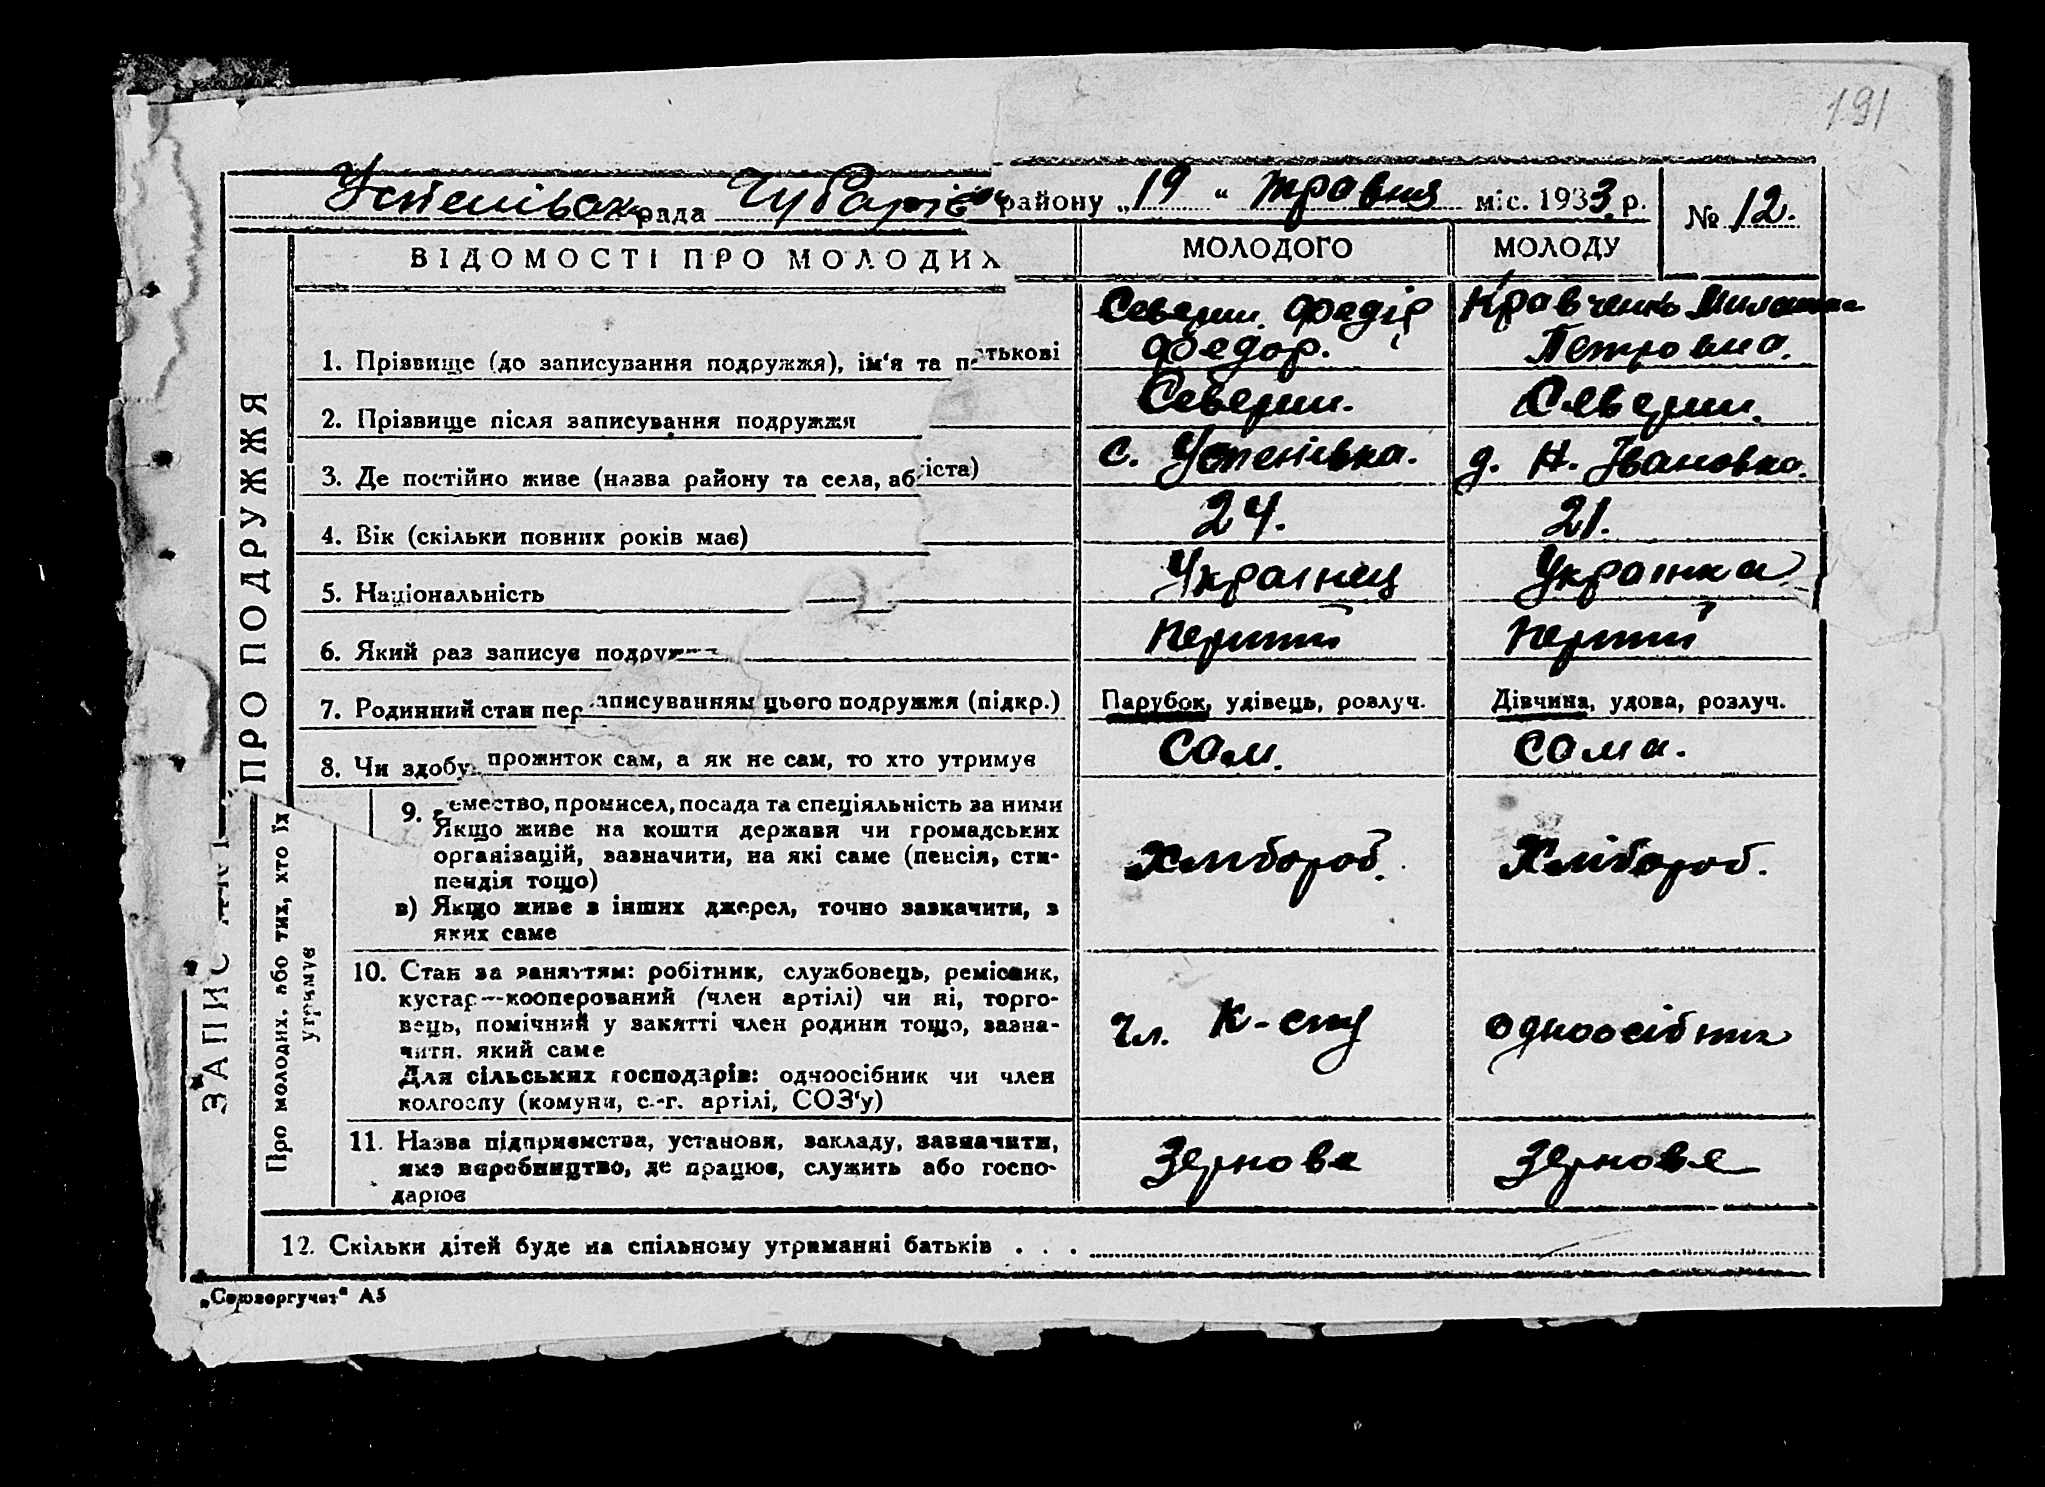 191
Успенівськ рада Чубарівськ району „19“ травня міс. 1933 р. № 12.
ВІДОМОСТІ ПРО МОЛОДИХ МОЛОДОГО МОЛОДУ
Северин Федір Кравченко Милашка
1. Прізвище (до записування подружжя), ім'я та п атькові Федор. Петровна.
2. Прізвище після записування подружжя Северин. Северин.
3. Де постійно живе (назва району та села, аб іста) с. Успенівка. д. Н. Івановка.
4. Вік (скільки повних років має) 24. 21.
5. Національність Українец Українка
6. Який раз записує подружжя перший перший
7. Родинний стан пер аписуванням цього подружжя (підкр.) Парубок, удівець, розлуч. Дівчина, удова, розлуч.
8. Чи здобу прожиток сам, а як не сам, то хто утримує Сам. Сама.
9. емество, промисел, посада та спеціяльність за ними
Якщо живе на кошти держави чи громадських
організацій, зазначити, на які саме (пенсія, сти-
пендія тощо) Хлібороб. Хлібороб.
в) Якщо живе з інших джерел, точно зазначити, з
яких саме
10. Стан за заняттям: робітник, службовець, ремісник,
кустар—кооперований (член артілі) чи ні, торго-
вець, помічний у занятті член родини тощо, зазна-
чити, який саме Чл. К-спу одноосібник
Для сільських господарів: одноосібник чи член
колгоспу (комуни, с.-г. артілі, СОЗ'у)
11. Назва підприємства, установи, закладу, зазначити,
яке виробництво, де працює, служить або госпо-
дарює Зернове Зернове
12. Скільки дітей буде на спільному утриманні батьків . . .
„Союзоргучет“ А5
ЗАПИС ПРО ПОДРУЖЖЯ
Про молодих, або тих, хто їх
утримує